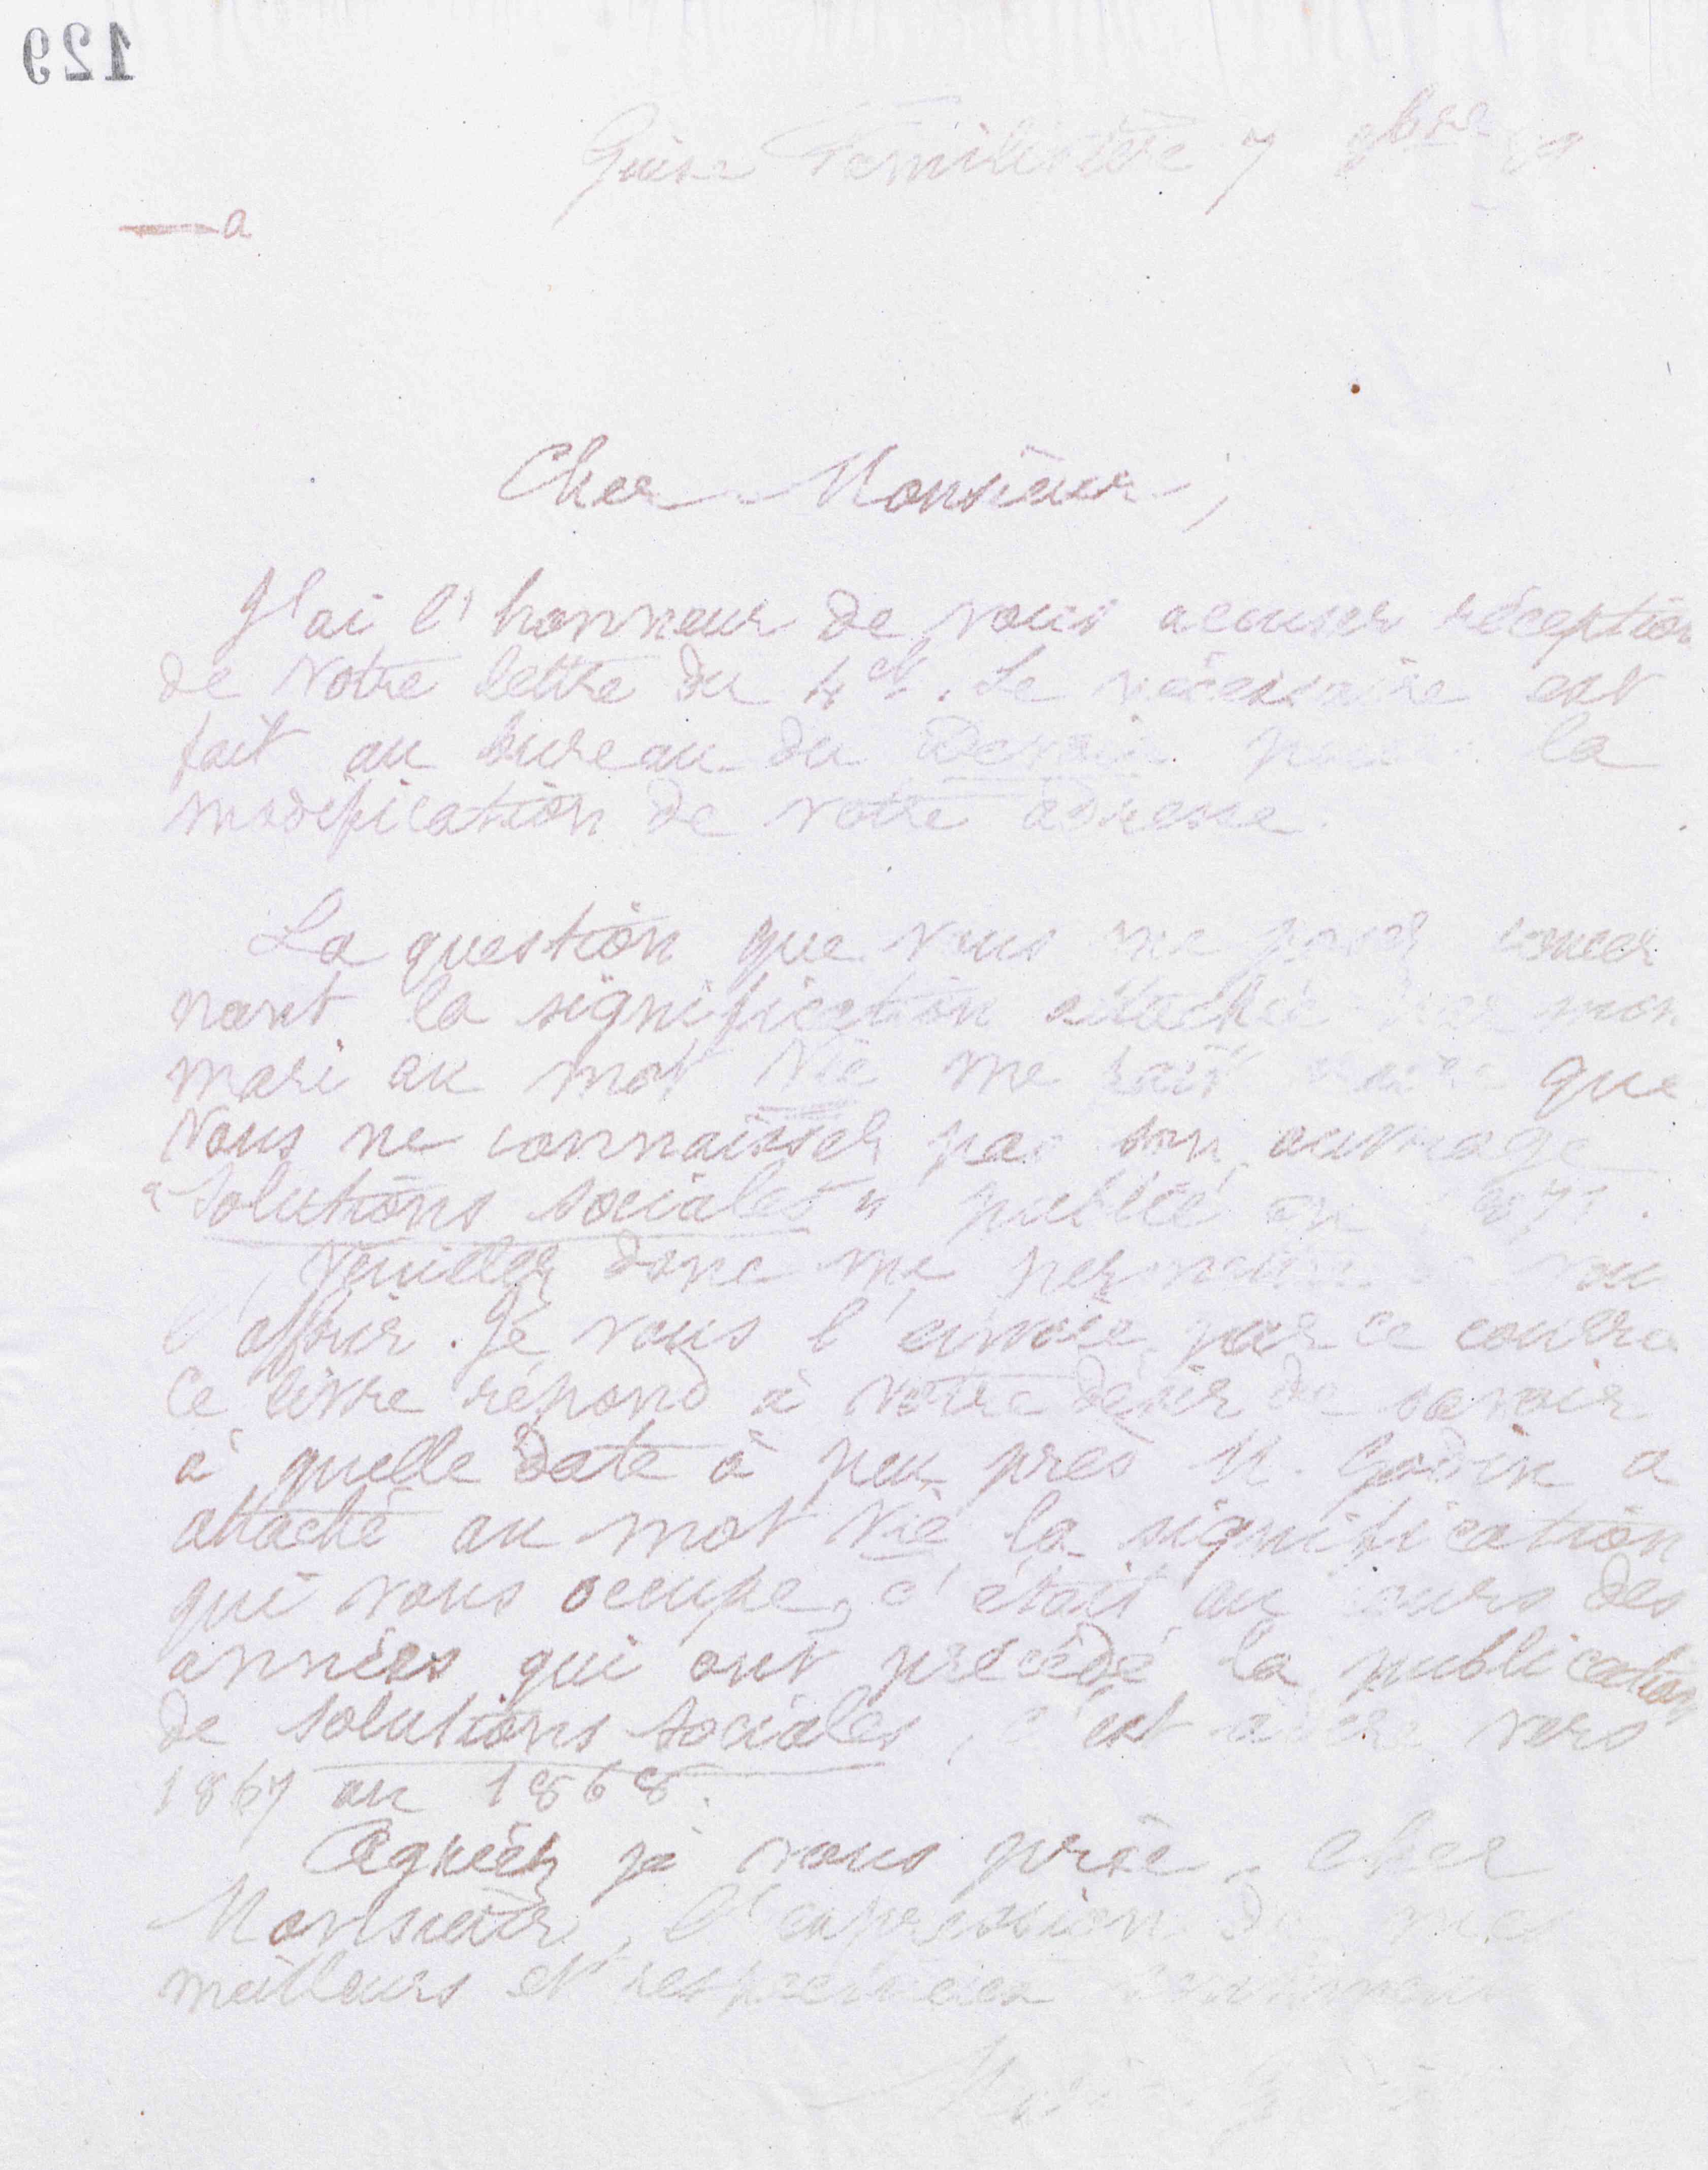 129
Guise Familistère 7 9bre 89
a
Cher Monsieur,
J'ai l'honneur de vous accuser réception
de votre lettre du 4 ct. Le nécessaire est
fait au bureau du Devoir pour la
modification de votre adresse.
La question que vous me posez concer
nant la signification attachée par mon
mari au mot Vie me fait croire que
vous ne connaissez pas son ouvrage
"Solutions sociales" publié en 1871.
Veuillez donc me permettre de vous
l'offrir. Je vous l'envoie par ce courrier
Ce livre répond à votre désir de savoir
à quelle date à peu près M. Godin a
attaché au mot Vie la signification
qui vous occupe, c'était au cours des
années qui ont précédé la publication
de Solutions sociales, c'est à dire vers
1867 ou 1868.
Agréez je vous prie, cher
Monsieur, l'expression de mes
meilleurs et respectueux sentiments
Marie Godin